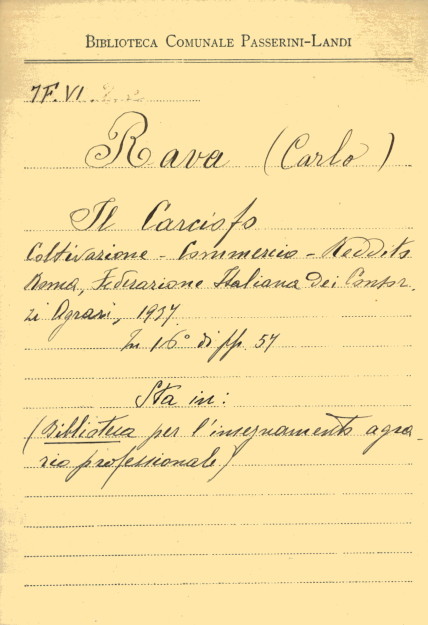 BIBLIOTECA COMUNALE PASSERINI-LANDI
7F.VI.
Rava (Carlo)
Il Carciofo
Coltivazione - Commercio - Reddito
Roma, Federazione Italiana dei Consor.
zi Agrari, 1937
In 16° di pp. 57
Sta in:
(Biblioteca per l'insegnamento agra-
rio professionale)